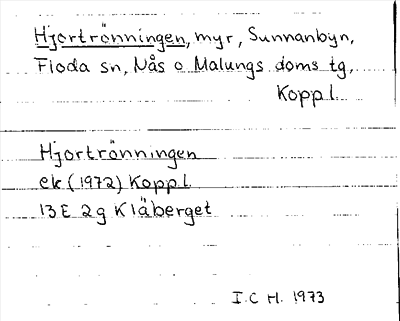 Hjortrönningen, myr, Sunnanbyn,
Floda sn, Nås o Malungs doms tg,
Koppl.
Hjortrönningen
ek (1972) Koppl.
13 E 2g Kläberget
I.C H. 1973